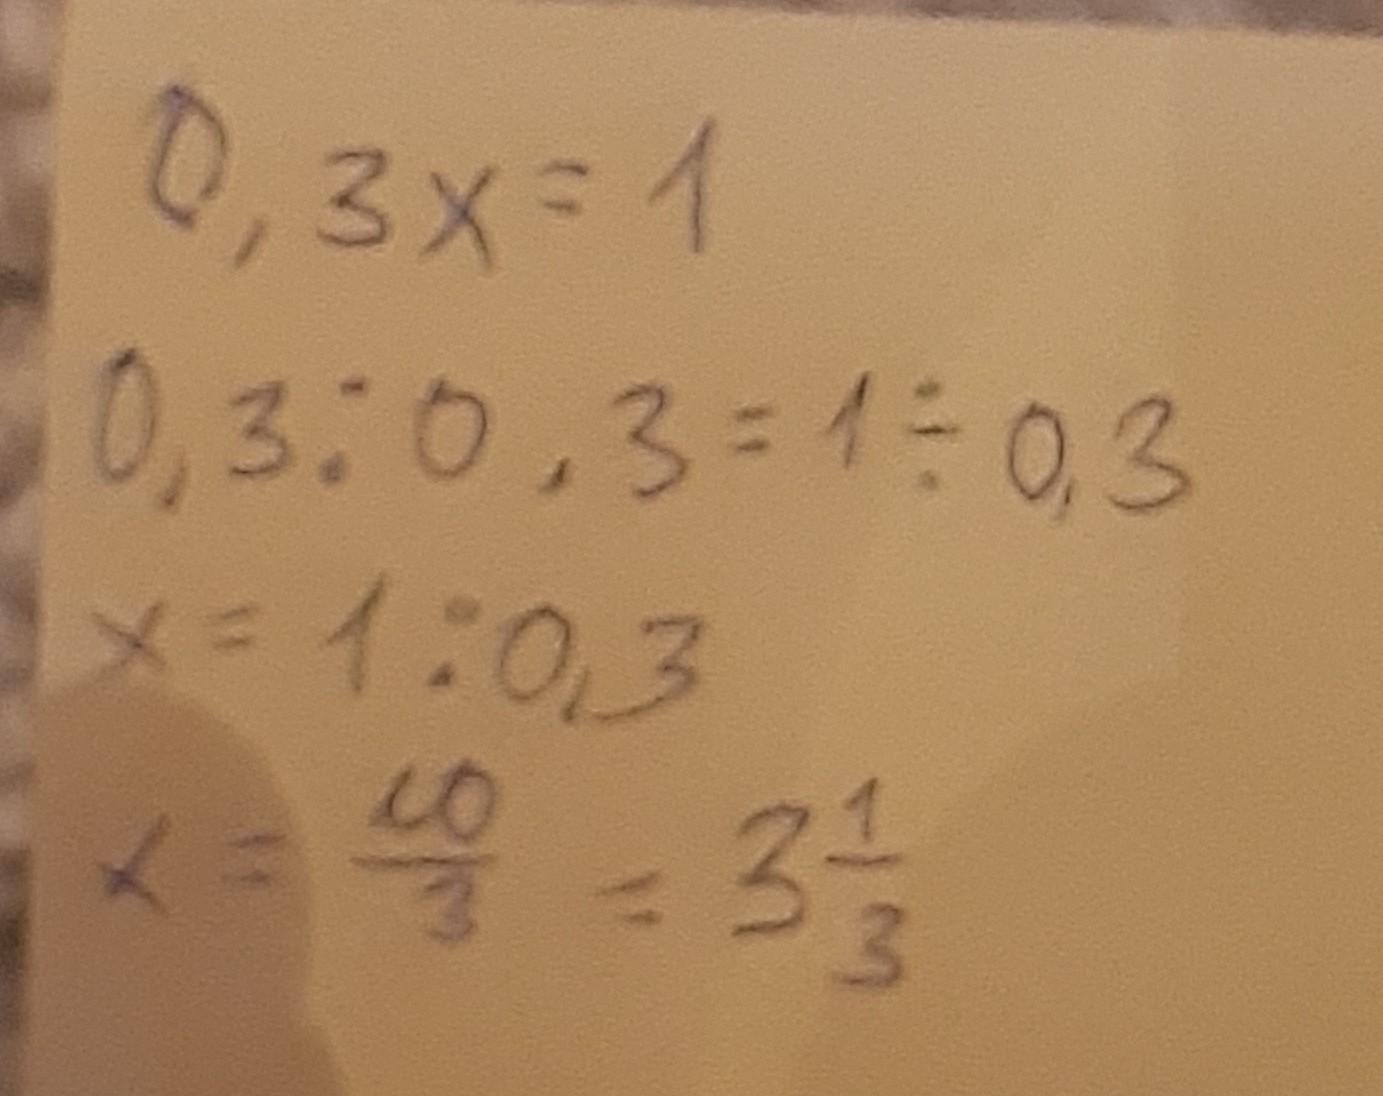 0,3x=1
0,3:0,3=1÷0,3
x=1:0,3
x=10/3=3 1/3